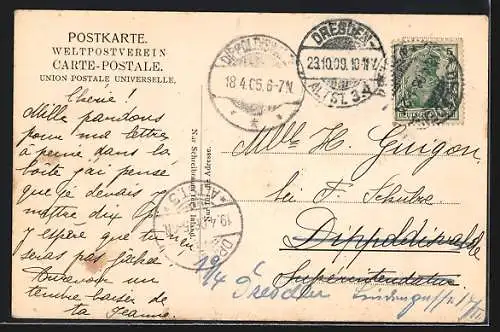 POSTKARTE.
WELTPOSTVEREIN
CARTE-POSTALE.
UNION POSTALE UNIVERSELLE.
Chérie!
Mille pardons
pour ma lettre
à peine dans la
boîte j'ai pensé
que je devais y
mettre dix
J'espère que tu ne
seras pas fâchée
un
tendre baiser de
ta Jeanne.
Nur für die Adresse.
18.4.05.6-7N.
DRESDEN-
ALTST. 3.A
Mlle H. Guigon
bei F. Schulze
Dippoldiswalde
Superintendatur
19/4
Dresden